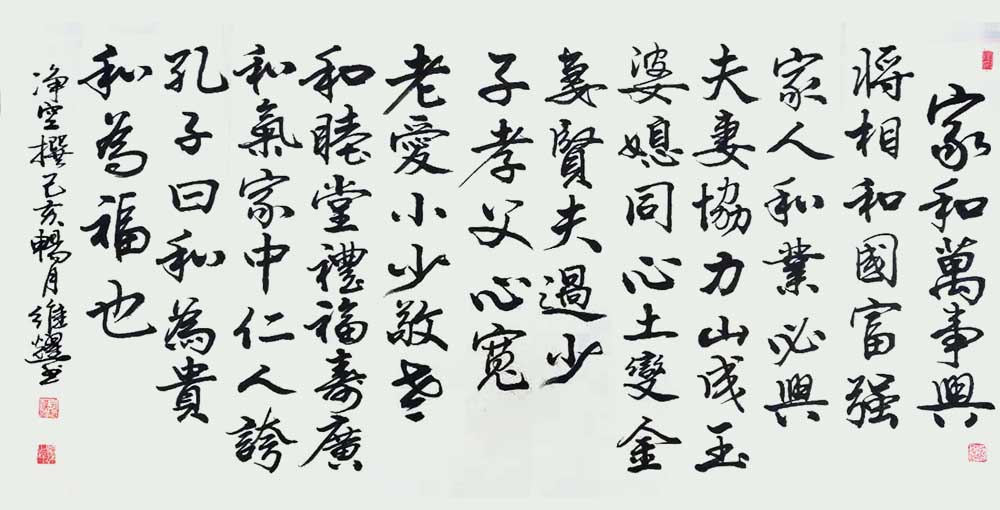 家和萬事興
將相和國富强
家人和業必興
夫妻協力山成玉
婆媳同心土變金
妻賢夫過少
子孝父心寬
老愛小少敬老
和睦堂禮福壽廣
和氣家中仁人誇
孔子曰和為貴
和為福也
净空撰己亥暢月維躍書